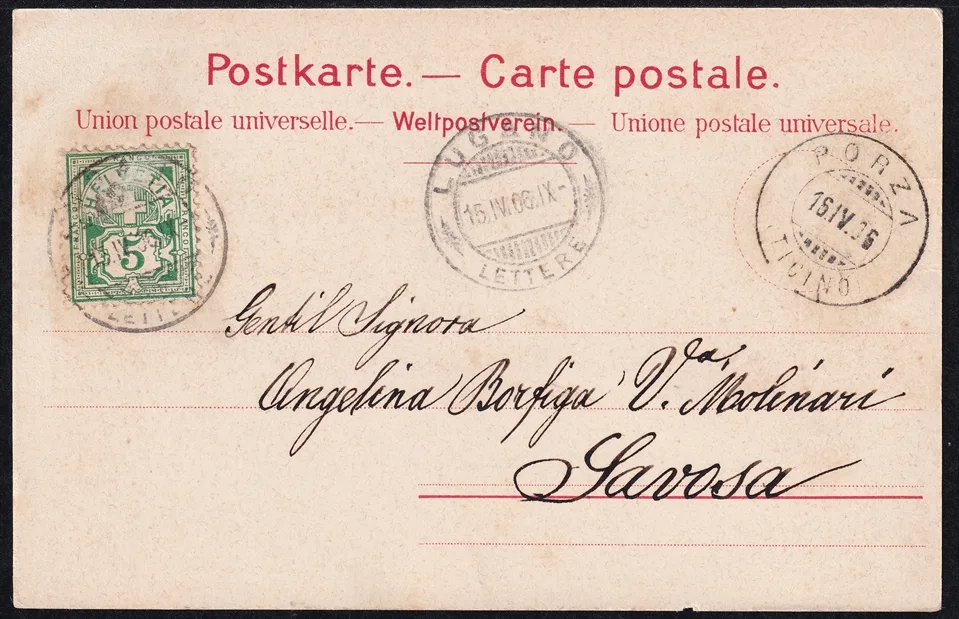 Postkarte. — Carte postale.
Union postale universelle. — Weltpostverein. — Unione postale universale.
HELVETIA
FRANCO
5
LETTERE
LUGANO
15.IV.06.IX-
LETTERE
PORZA
16.IV.06
(TICINO)
Gentil Signora
Angelina Borfiga Va. Molinari
Savosa